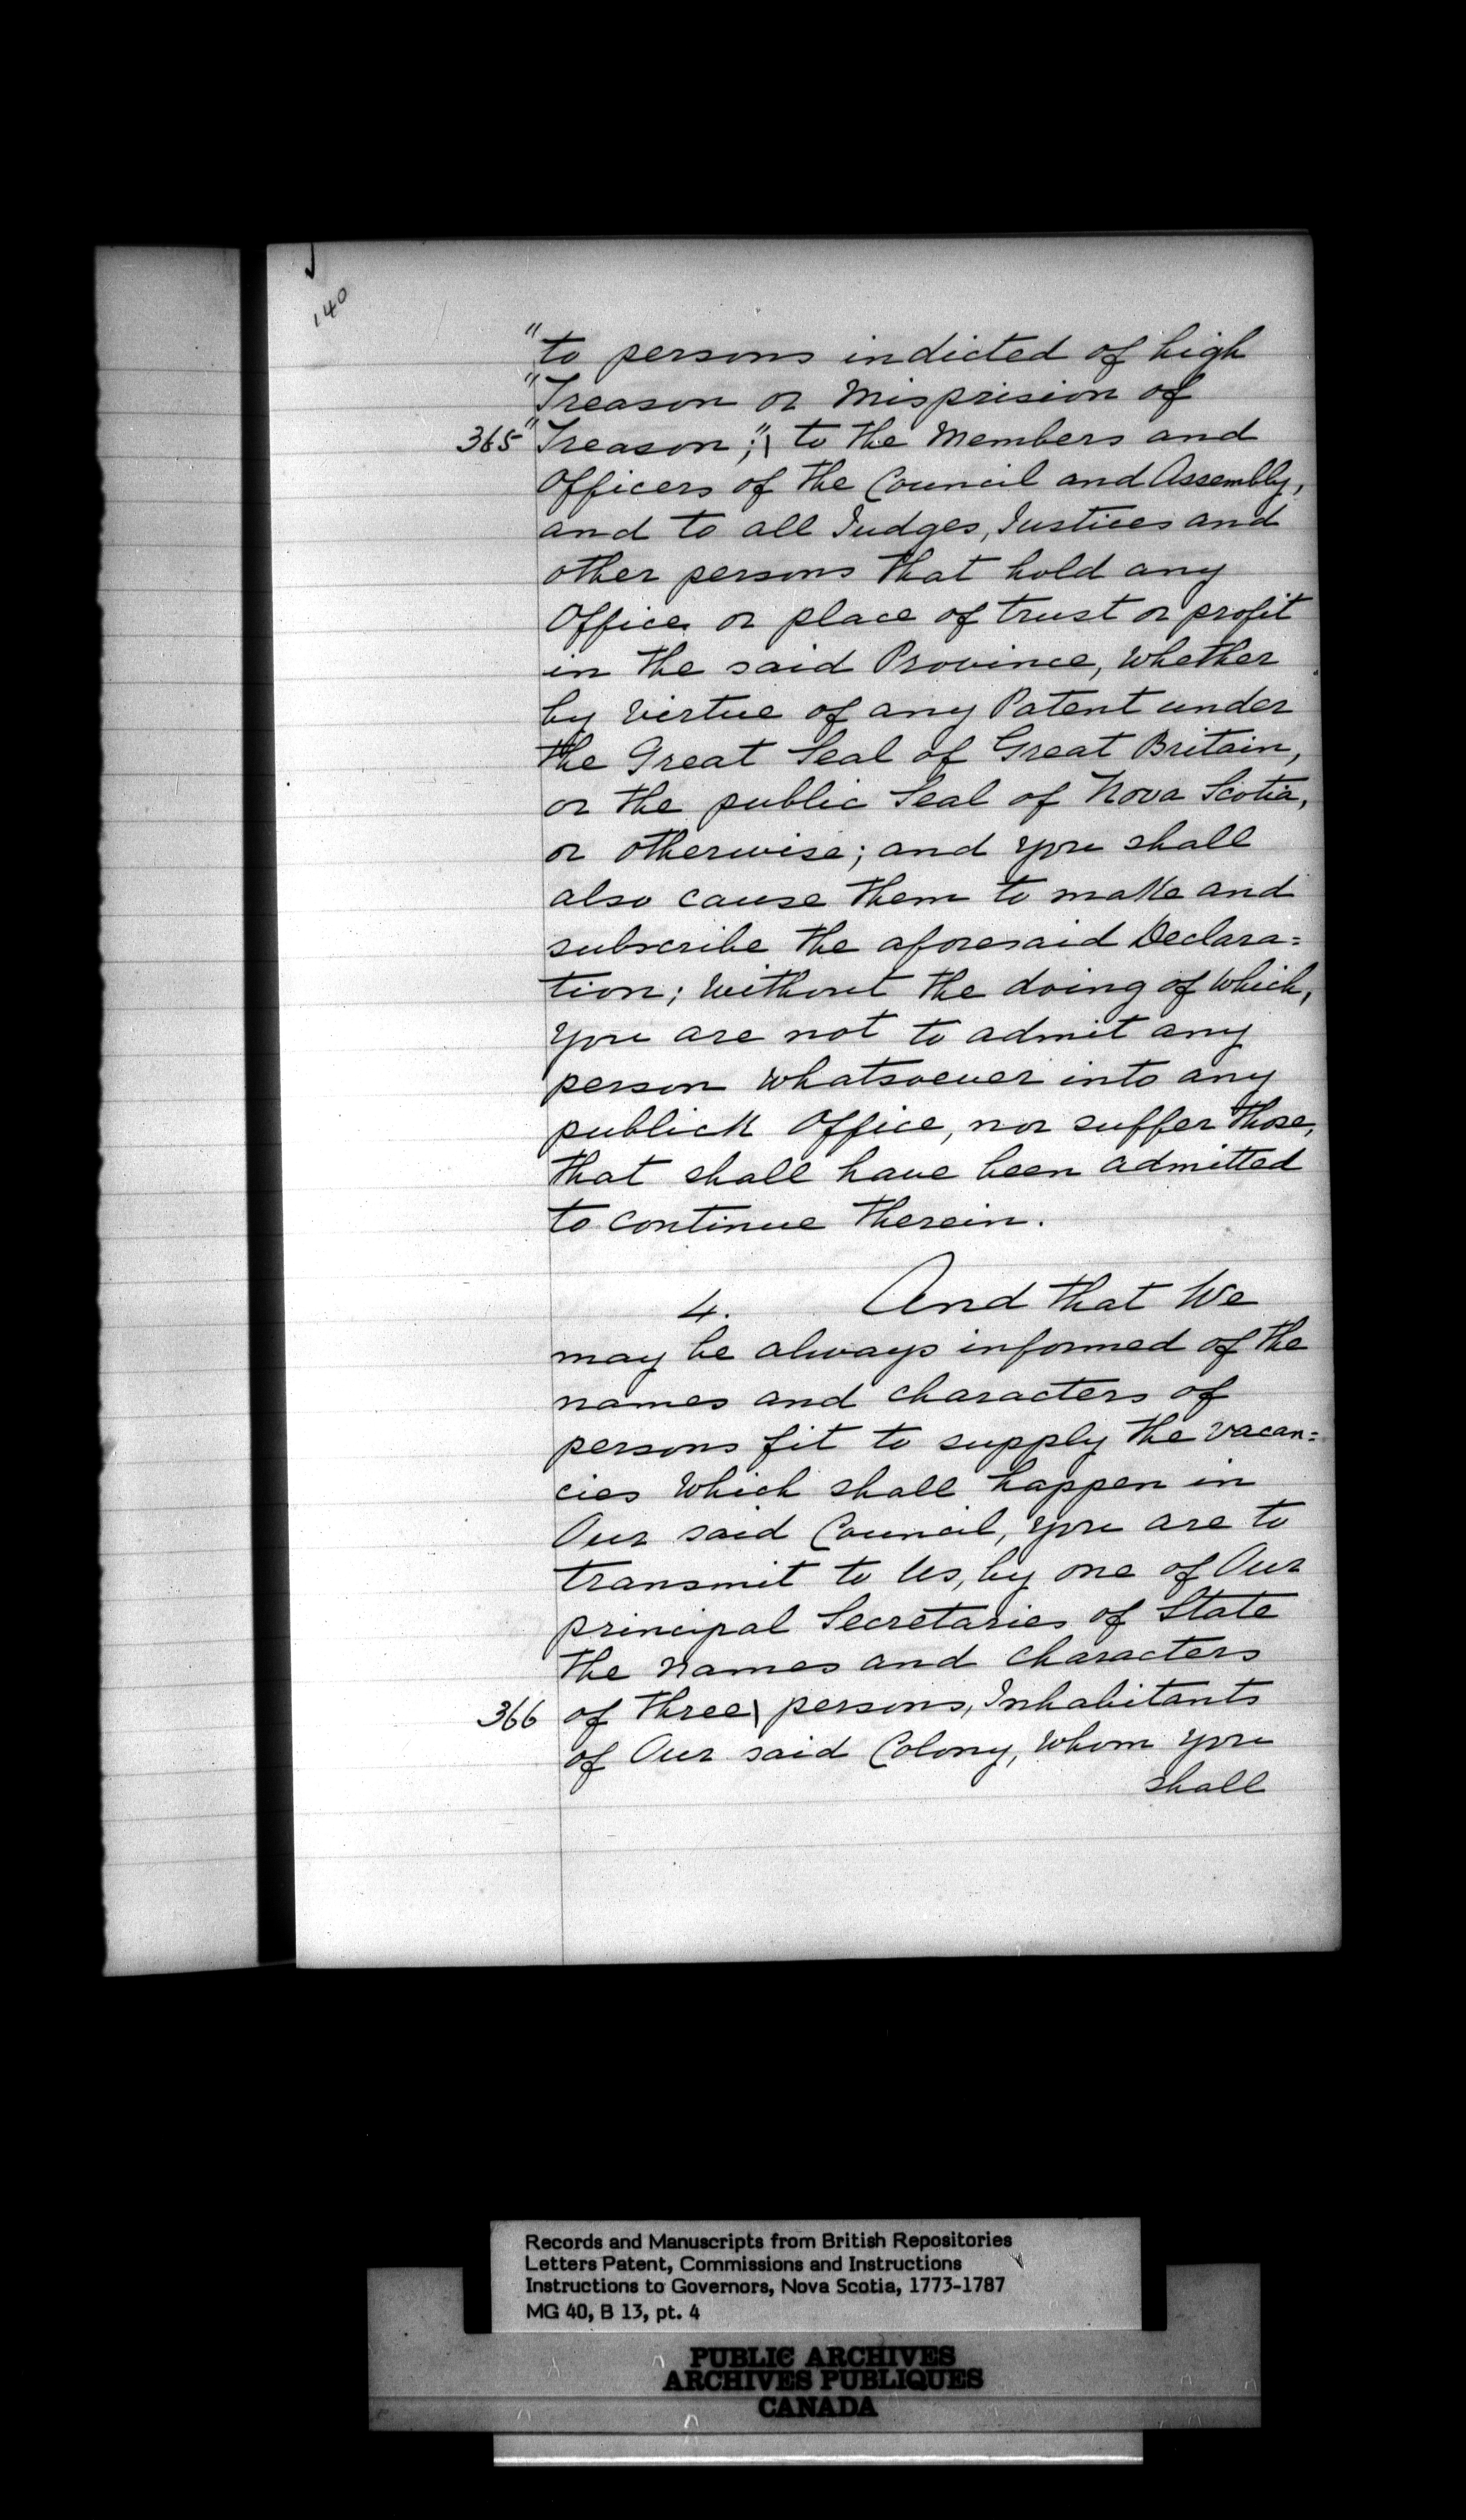 140
"to persons indicted of high
"Treason or Misprision of
365 "Treason;"\ to the Members and
Officers of the Council and Assembly,
and to all Judges, Justices and
other persons that hold any
Office or place of trust or profit
in the said Province, whether
by virtue of any Patent under
the Great Seal of Great Britain,
or the public Seal of Nova Scotia,
or otherwise; and you shall
also cause them to make and
subscribe the aforesaid Declara=
tion; without the doing of which,
you are not to admit any
person whatsoever into any
publick Office, nor suffer those,
that shall have been admitted
to continue therein.
4. And that We
may be always informed of the
names and characters of
persons fit to supply the vacan=
cies which shall happen in
Our said Council, you are to
transmit to Us, by one of Our
principal Secretaries of State
the names and characters
366 of three\ persons, Inhabitants
of Our said Colony, whom you
shall
Records and Manuscripts from British Repositories
Letters Patent, Commissions and Instructions
Instructions to Governors, Nova Scotia, 1773-1787
MG 40, B 13, pt. 4
PUBLIC ARCHIVES
ARCHIVES PUBLIQUES
CANADA